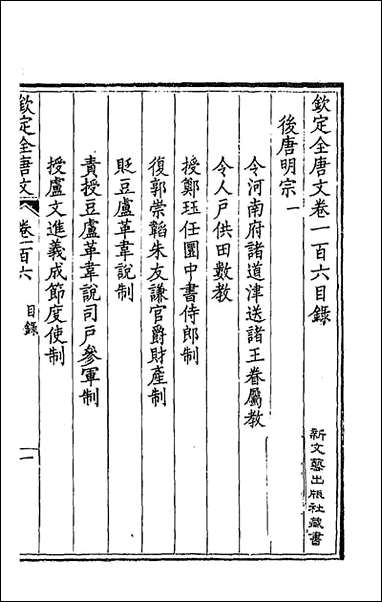 欽定全唐文卷一百六目錄
後唐明宗一
令河南府諸道津送諸王眷屬教
令人戶供田數教
授鄭珏任圜中書侍郎制
復郭崇韜朱友謙官爵財產制
貶豆盧革韋說制
責授豆盧革韋說司戶參軍制
授盧文進義成節度使制
欽定全唐文 卷一百六 目錄 一
新文藝出版社藏書